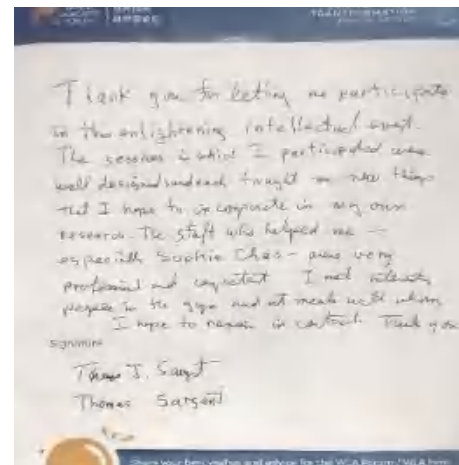 TRANSFORMATION
Thank you for letting me participate
in this enlightening intellectual event.
The sessions in which I participated were
well designed and each taught me new things
that I hope to incorporate in my own
research. The staff who helped me —
especially Sophie Chao - were very
professional and competent I met
people in the and at meals with whom
I hope to remain in contact. Thank you
signature
Thomas J. Sargent
Thomas Sargent
Share your best wishes and advice for the WLA Forum